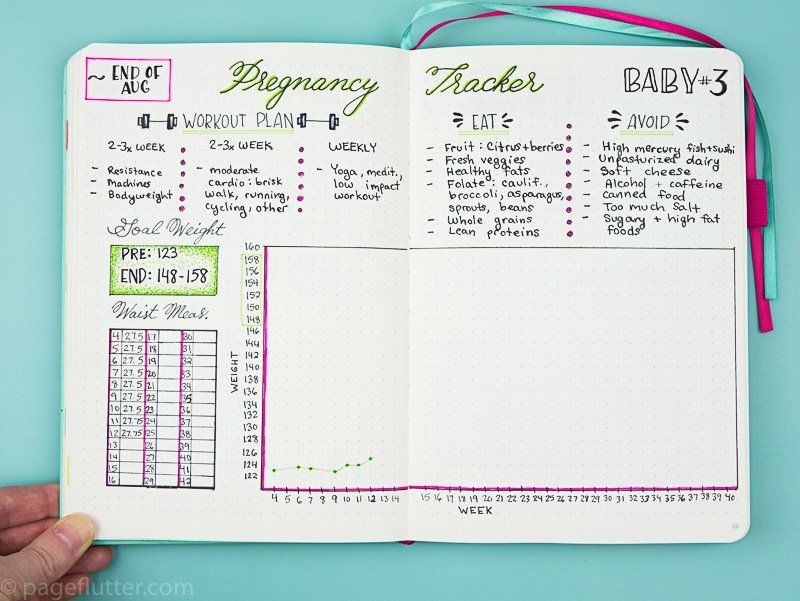 ~ END OF
AUG
Pregnancy
Tracker
BABY #3
WORKOUT PLAN
2-3x WEEK
- Resistance
- Machines
- Bodyweight
2-3x WEEK
- moderate
cardio: brisk
walk, running,
cycling, other
WEEKLY
- Yoga, medit.,
low impact
workout
EAT
- Fruit: Citrus + berries
- Fresh veggies
- Healthy fats
- Folate: caulif.,
broccoli, asparagus,
sprouts, beans
- Whole grains
- Lean proteins
AVOID
- High mercury fish + sushi
- Unpasturized dairy
- Soft cheese
- Alcohol + caffeine
- canned food
- Too much salt
- Sugary + high fat
foods
Goal Weight
PRE: 123
END: 148-158
Waist Meas.
4 27.5 17 30
5 27.5 18 31
6 27.5 19 32
7 27.5 20 33
8 27.5 21 34
9 27.5 22 35
10 27.5 23 36
11 27.75 24 37
12 27.75 25 38
13 26 39
14 27 40
15 28 41
16 29 42
WEIGHT
160
158
156
154
152
150
148
146
144
142
140
138
136
134
132
130
128
126
124
122
4 5 6 7 8 9 10 11 12 13 14
15 16 17 18 19 20 21 22 23 24 25 26 27 28 29 30 31 32 33 34 35 36 37 38 39 40
WEEK
66
© pageflutter.com